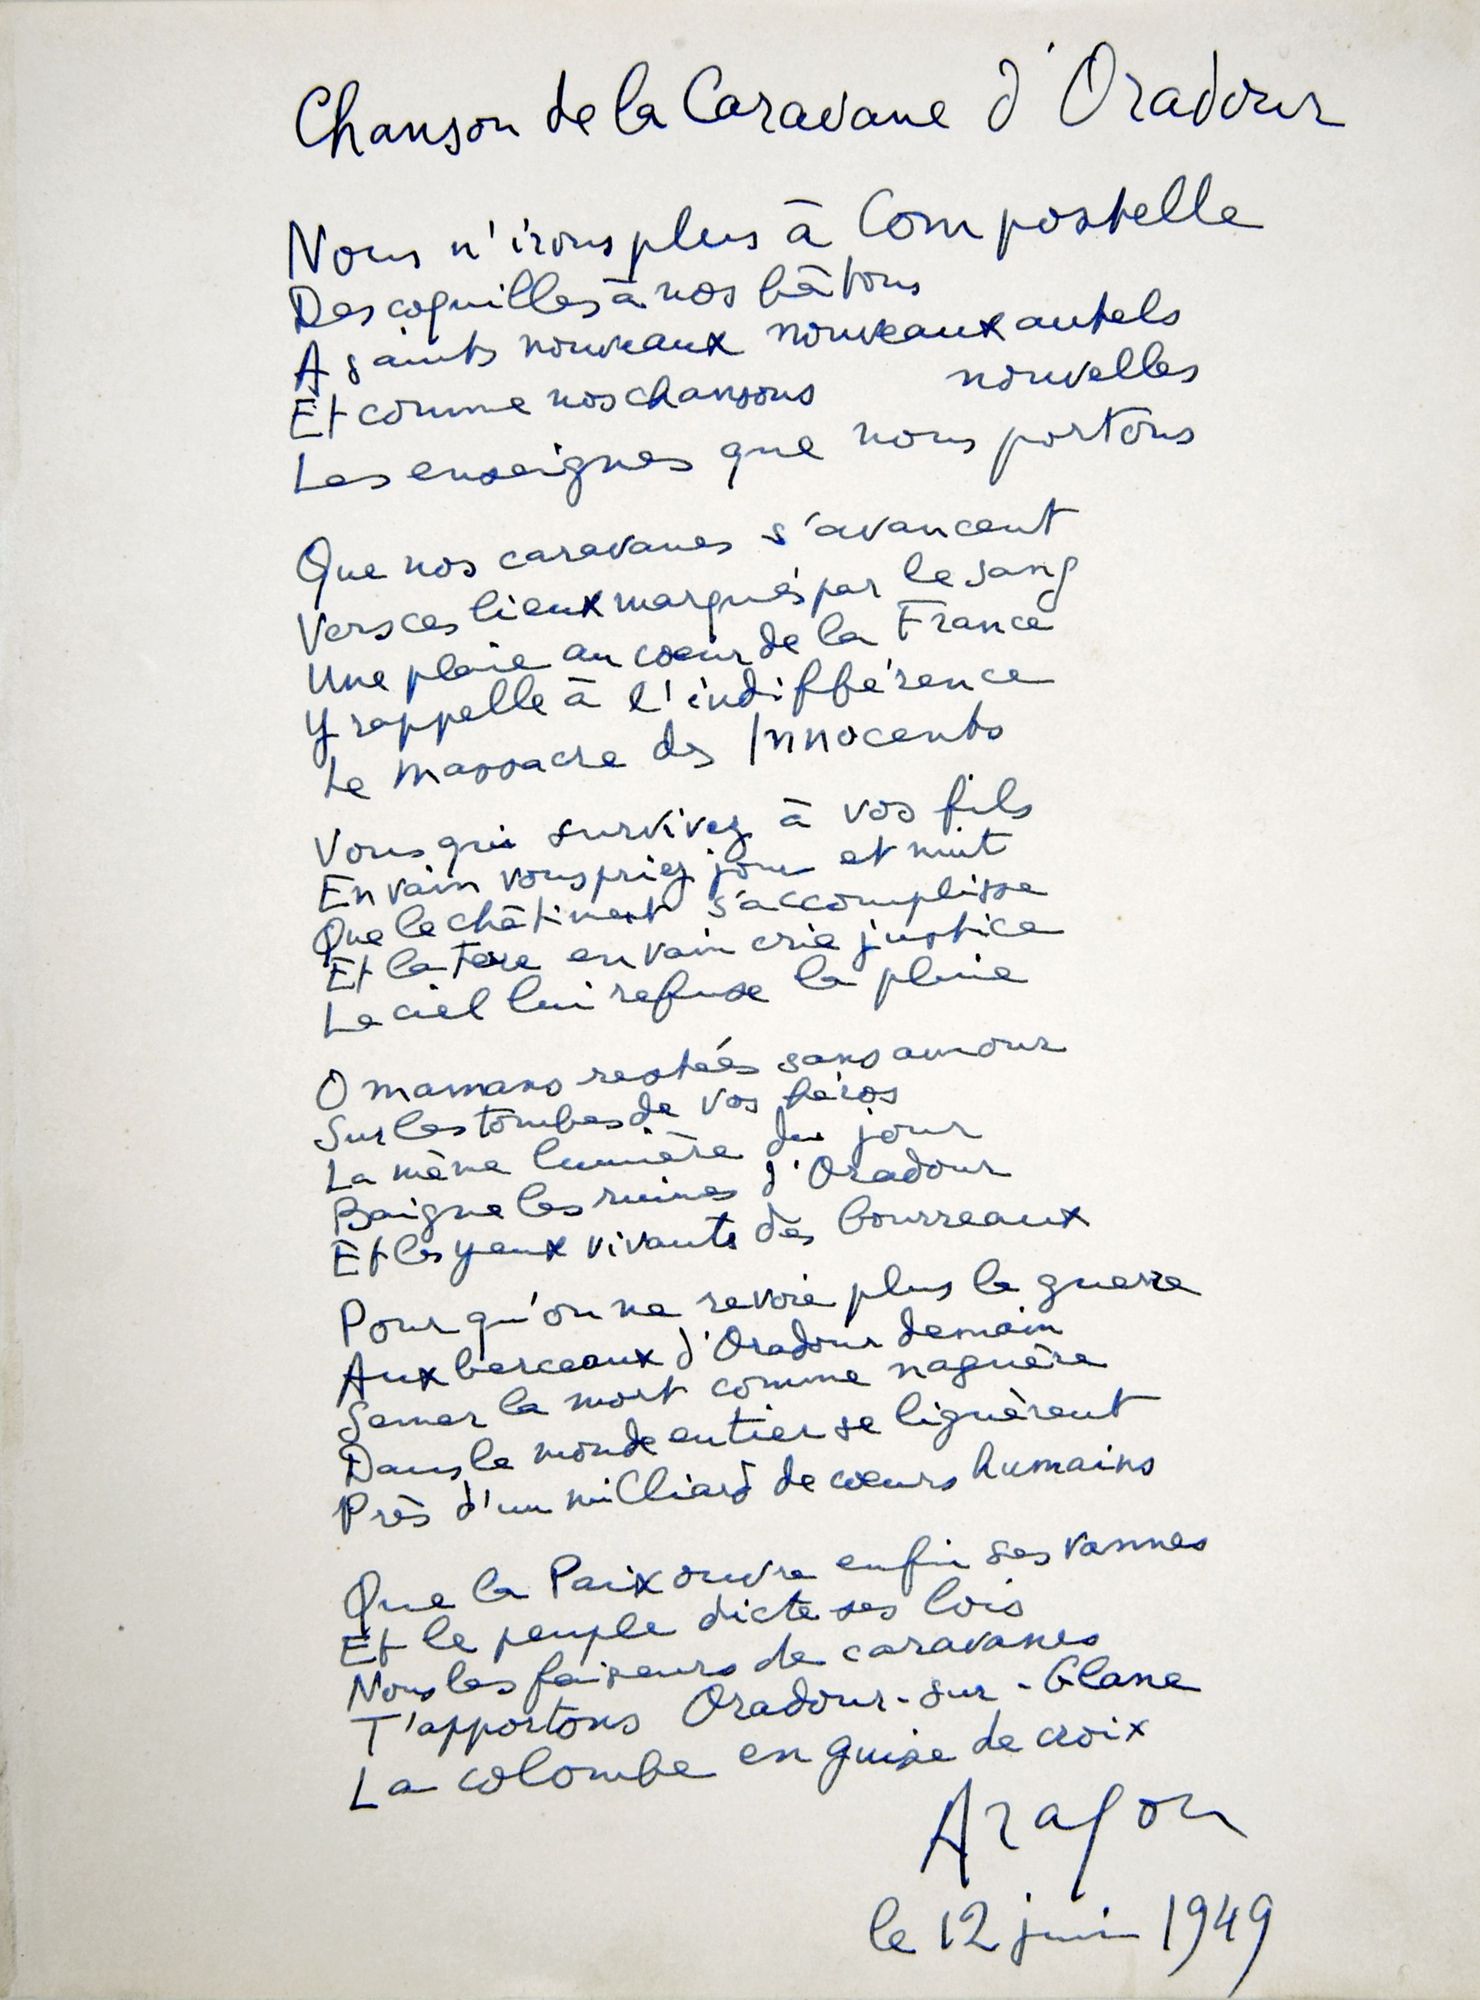 Chanson de la Caravane d'Oradour
Nous n'irons plus à Compostelle
Des coquilles à nos bâtons
A saints nouveaux nouveaux autels
Et comme nos chansons nouvelles
Les enseignes que nous portons
Que nos caravanes s'avancent
Vers ces lieux marqués par le sang
Une plaie au cœur de la France
Y rappelle à l'indifférence
Le massacre des Innocents
Vous qui survivez à vos fils
En vain vous priez jour et nuit
Que le châtiment s'accomplisse
Et la terre en vain crie justice
Le ciel lui refuse la pluie
O mamans restées sans amour
Sur les tombes de vos héros
La même lumière du jour
Baigne les ruines d'Oradour
Et les yeux vivants des bourreaux
Pour qu'on ne revoie plus la guerre
Aux berceaux d'Oradour demain
Semer la mort comme naguère
Dans le monde entier se liguèrent
Près d'un milliard de cœurs humains
Que la Paix ouvre enfin ses vannes
Et le peuple dicte ses lois
Nous les faiseurs de caravanes
T'apportons Oradour-sur-Glane
La colombe en guise de croix
Aragon
le 12 juin 1949